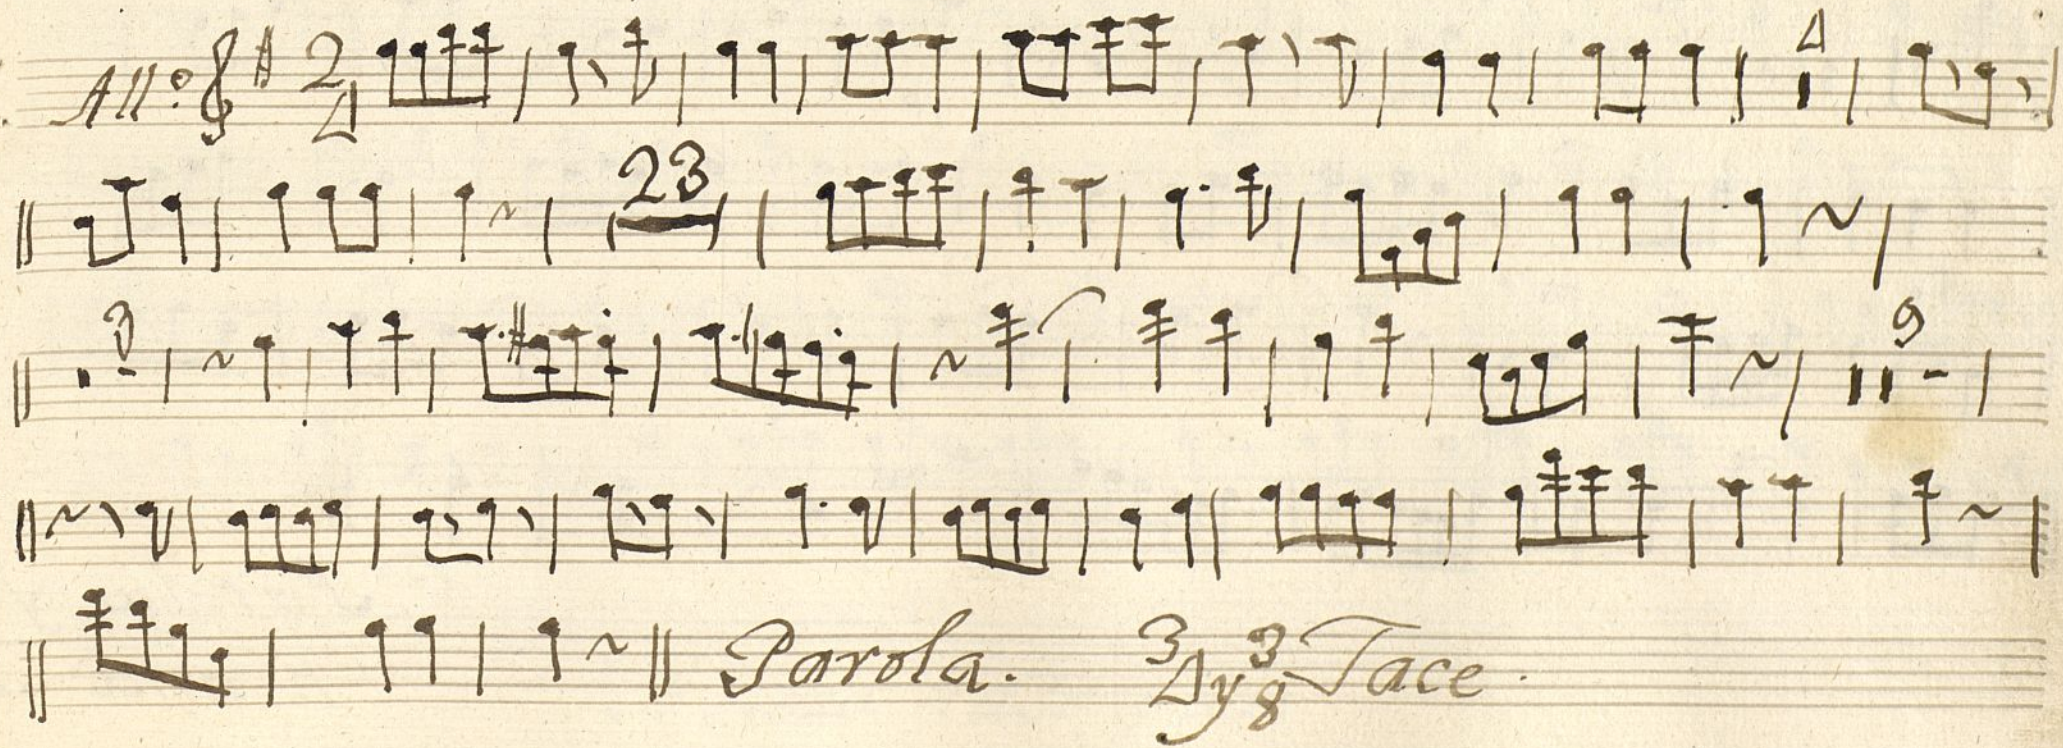 All.o 2 4 4
23
3 9
Parola. 3 4 y 3 8 Tace.